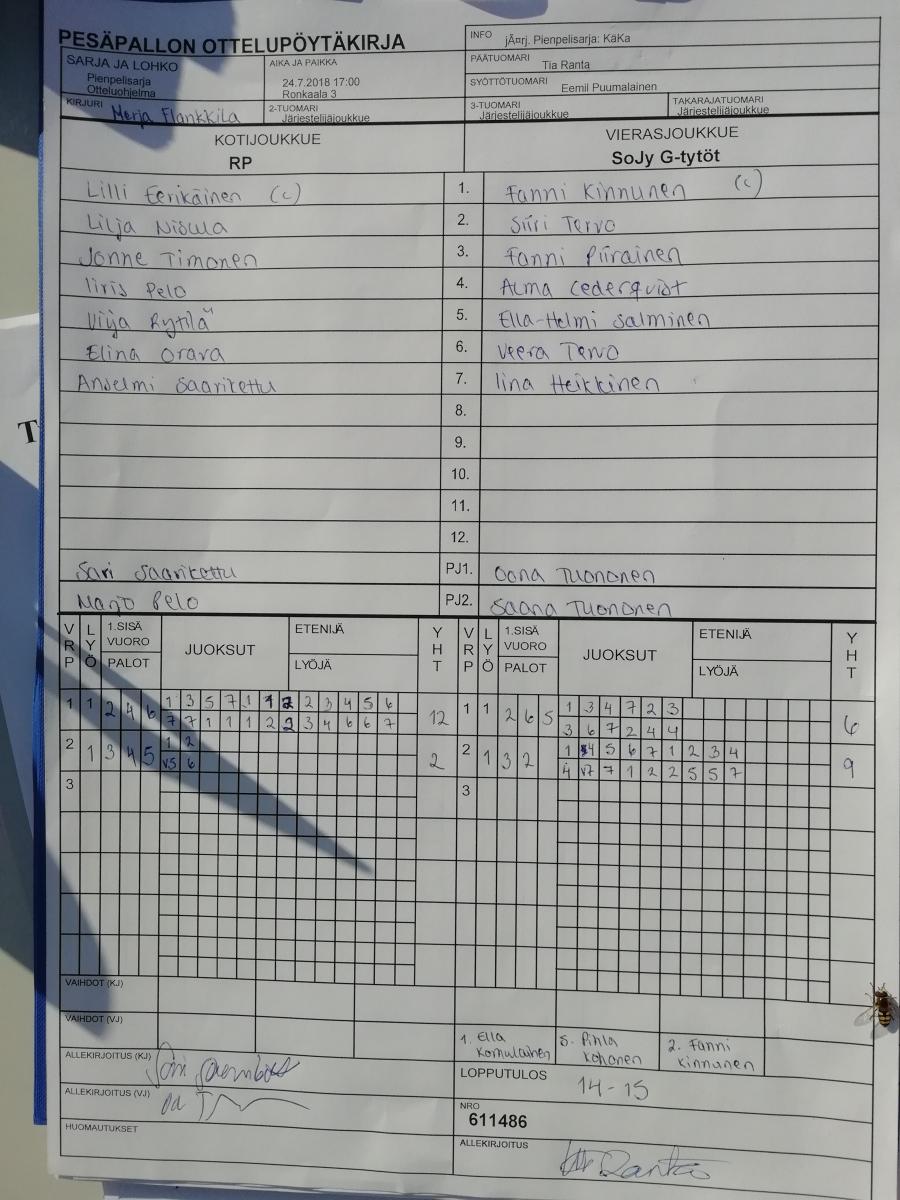 PESÄPALLON OTTELUPÖYTÄKIRJA
INFO jÃ¤rj. Pienpelisarja: KäKa
SARJA JA LOHKO
Pienpelisarja
Otteluohjelma
AIKA JA PAIKKA
24.7.2018 17:00
Ronkaala 3
PÄÄTUOMARI Tia Ranta
SYÖTTÖTUOMARI Eemil Puumalainen
KIRJURI Merja Flankkila
2-TUOMARI
Järjestelijäjoukkue
3-TUOMARI
Järjestelijäjoukkue
TAKARAJATUOMARI
Järjestelijäjoukkue
KOTIJOUKKUE
RP
VIERASJOUKKUE
SoJy G-tytöt
Lilli Eerikäinen (c) 1. Fanni Kinnunen (c)
Lilja Nisula 2. Siiri Tervo
Jonne Timonen 3. Fanni Piirainen
Iiris Pelo 4. Alma Cederqvist
Vilja Rytilä 5. Ella-Helmi Salminen
Elina Orava 6. Veera Tervo
Anselmi Saarikettu 7. Iina Heikkinen
8.
9.
10.
11.
12.
Sari Saarikettu PJ1. Oona Tuononen
Marjo Pelo PJ2. Saana Tuononen
VRP LYÖ 1.SISÄ VUORO PALOT JUOKSUT ETENIJÄ LYÖJÄ YHT VRP LYÖ 1.SISÄ VUORO PALOT JUOKSUT ETENIJÄ LYÖJÄ YHT
1 1 2 4 6 1 3 5 7 1 1 2 2 3 4 5 6 12 1 1 2 6 5 1 3 4 7 2 3 6
7 7 1 1 1 2 2 3 4 6 6 7 3 6 7 2 4 4
2 1 3 4 5 1 2 2 2 1 3 2 1 4 5 6 7 1 2 3 4 9
V5 6 4 V7 7 1 2 2 5 5 7
3 3
VAIHDOT (KJ)
VAIHDOT (VJ)
1. Ella Komulainen 5. Pihla Kohonen 2. Fanni Kinnunen
ALLEKIRJOITUS (KJ)
LOPPUTULOS 14-15
ALLEKIRJOITUS (VJ)
NRO
611486
HUOMAUTUKSET
ALLEKIRJOITUS Ranta
T